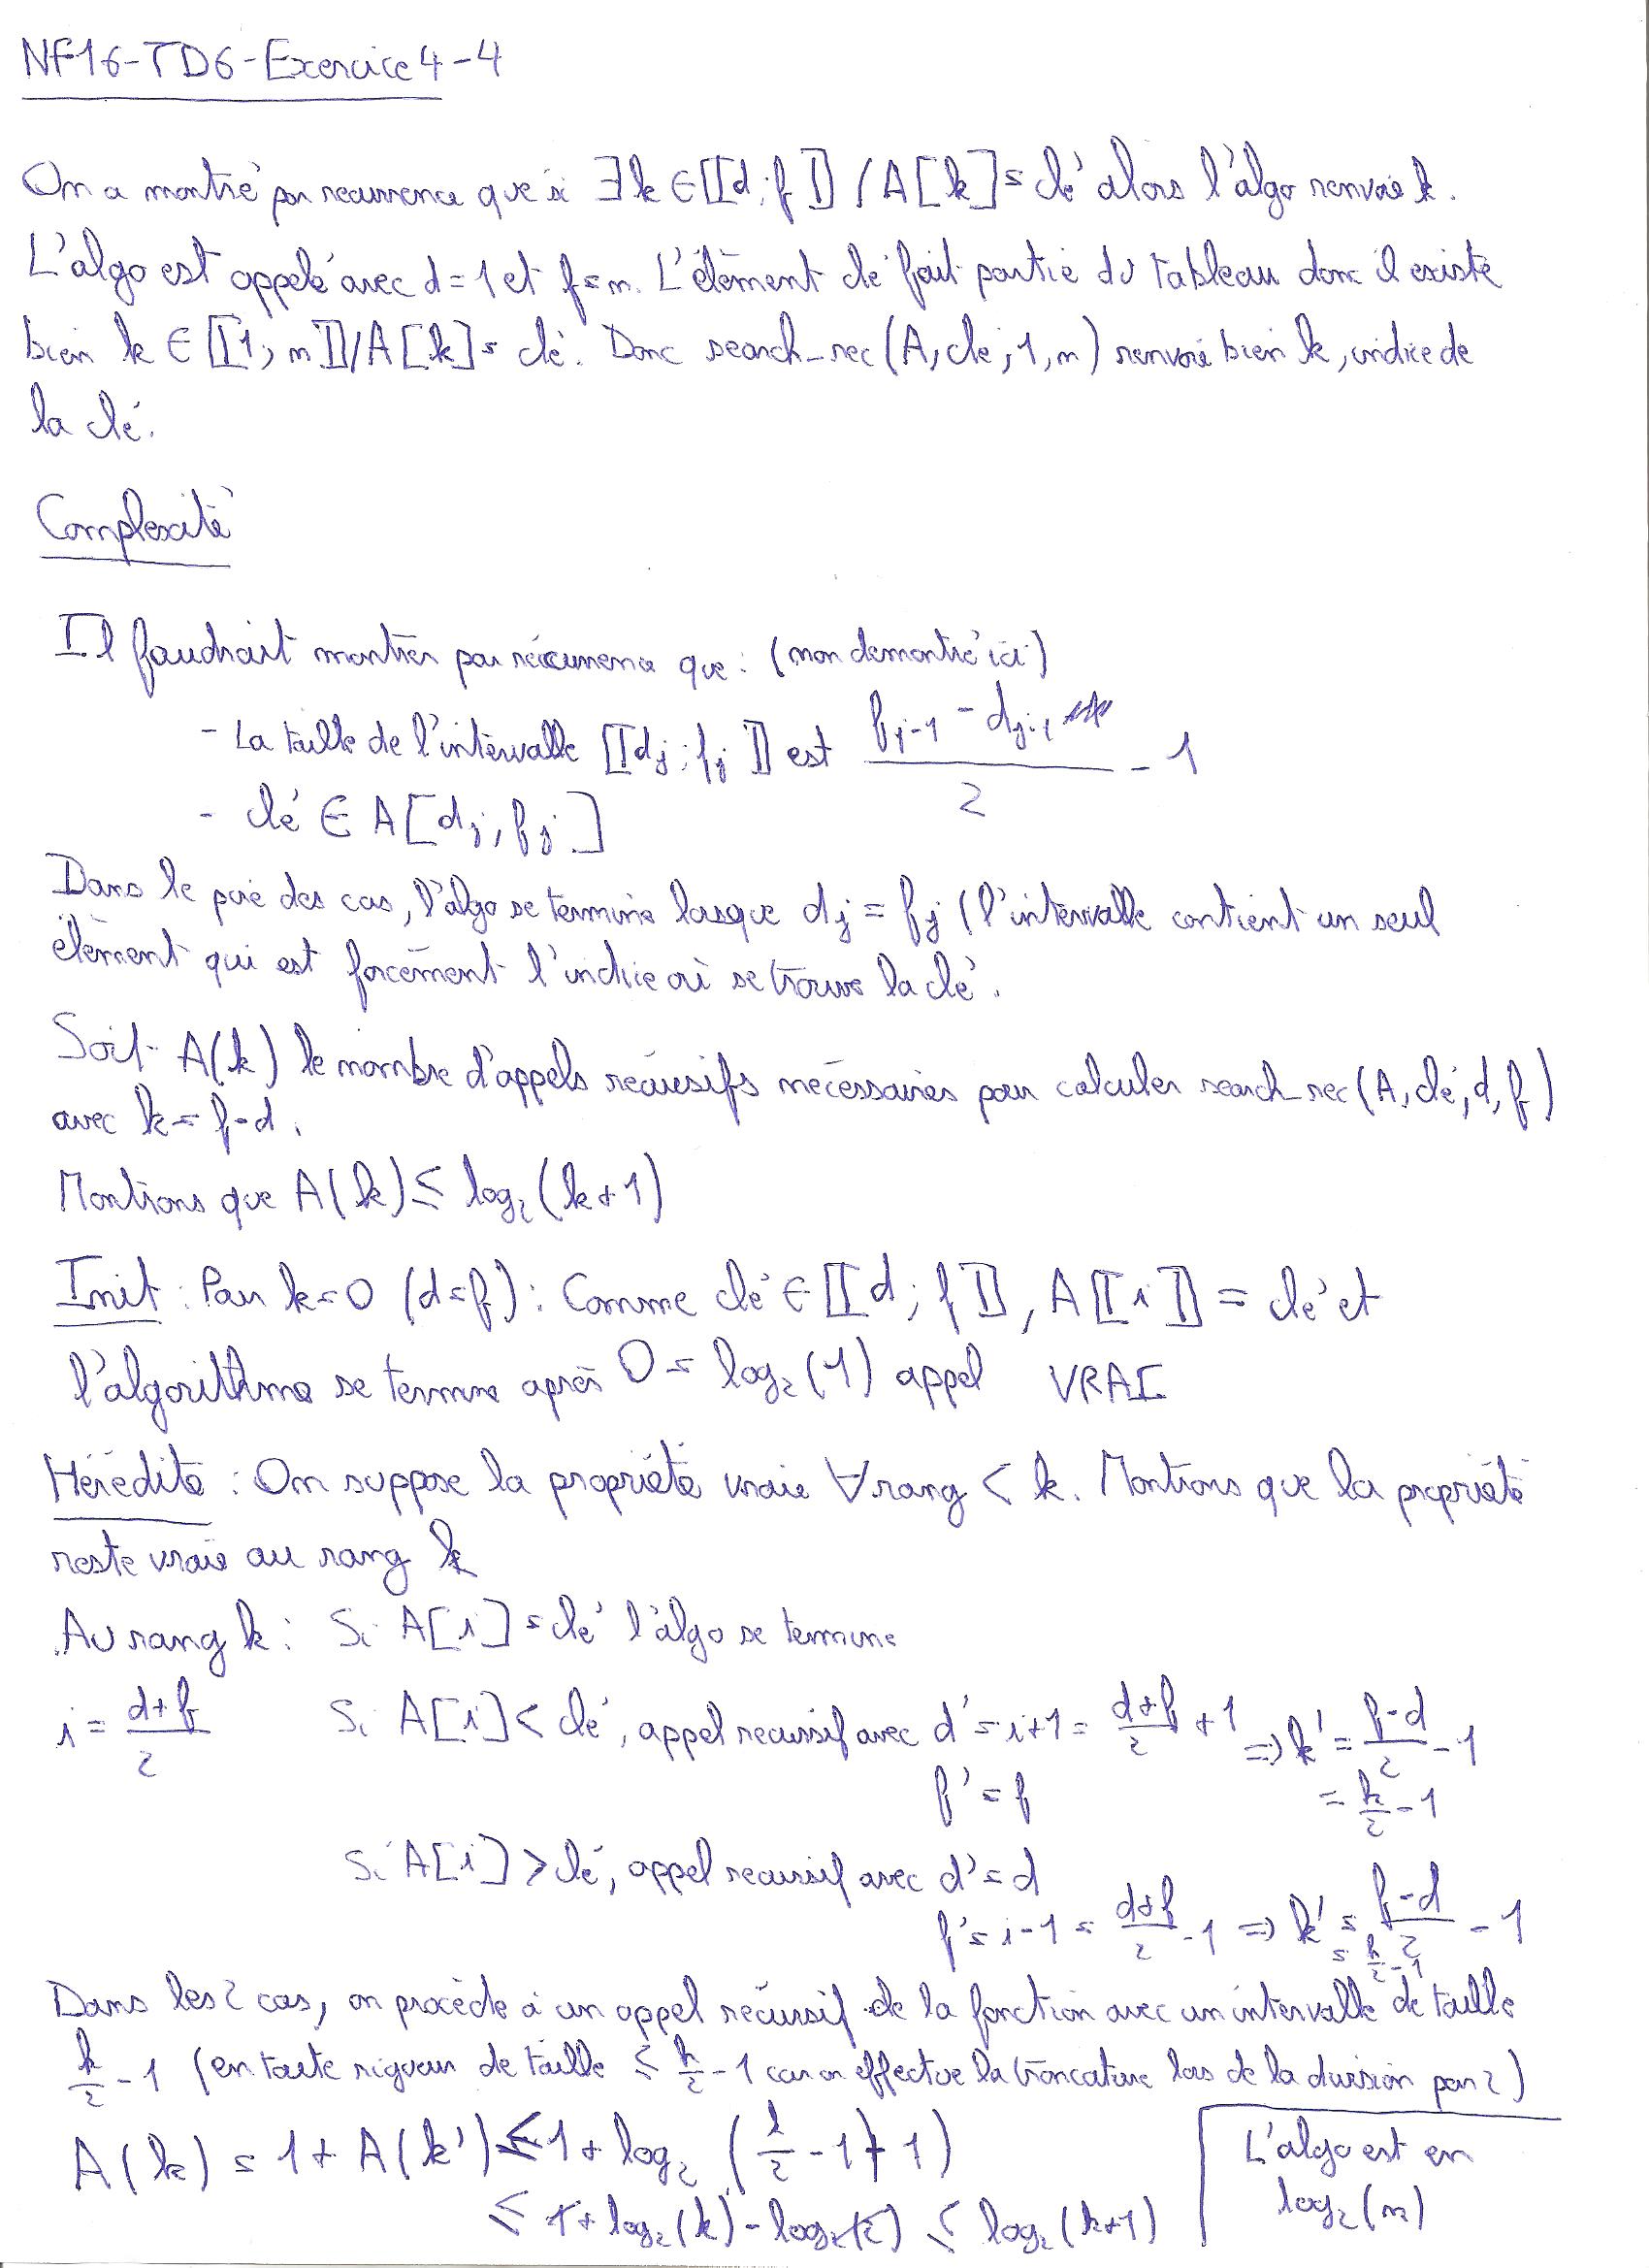 NF16-TD6-Exercice 4-4
On a montré par recurrence que si ∃k ∈ ⟦d;f⟧ / A[k] = clé alors l'algo renvoie k.
L'algo est appelé avec d=1 et f=n. L'élément clé fait partie du tableau donc il existe
bien k ∈ ⟦1;n⟧ / A[k] = clé. Donc search_rec(A, clé, 1, n) renvoie bien k, indice de
la clé.
Complexité
Il faudrait montrer par récurrence que : (non demontré ici)
- La taille de l'intervalle ⟦dj;fj⟧ est (fj-1 - dj-1)/2 - 1
- clé ∈ A[dj, fj]
Dans le pire des cas, l'algo se termine lorsque dj = fj (l'intervalle contient un seul
élément qui est forcément l'indice où se trouve la clé.
Soit A(k) le nombre d'appels récursifs nécessaires pour calculer search_rec(A, clé, d, f)
avec k = f-d.
Montrons que A(k) ≤ log₂(k+1)
Init : Pour k=0 (d=f) : Comme clé ∈ ⟦d;f⟧, A⟦i⟧ = clé et
l'algorithme se termine après 0 = log₂(1) appel VRAI
Hérédité : On suppose la propriété vraie ∀ rang < k. Montrons que la propriété
reste vraie au rang k
Au rang k : Si A[i] = clé l'algo se termine
i = (d+f)/2 Si A[i] < clé, appel recursif avec d' = i+1 = (d+f)/2 + 1 ⇒ k' = (f-d)/2 - 1
f' = f = k/2 - 1
Si A[i] > clé, appel recursif avec d' = d
f' = i-1 = (d+f)/2 - 1 ⇒ k' = (f-d)/2 - 1
= k/2 - 1
Dans les 2 cas, on procède à un appel récursif de la fonction avec un intervalle de taille
k/2 - 1 (en toute rigueur de taille ≤ k/2 - 1 car on effectue la troncature lors de la division par 2)
A(k) = 1 + A(k') ≤ 1 + log₂(k/2 - 1 + 1)
≤ 1 + log₂(k) - log₂(2) ≤ log₂(k+1)
L'algo est en
log₂(n)